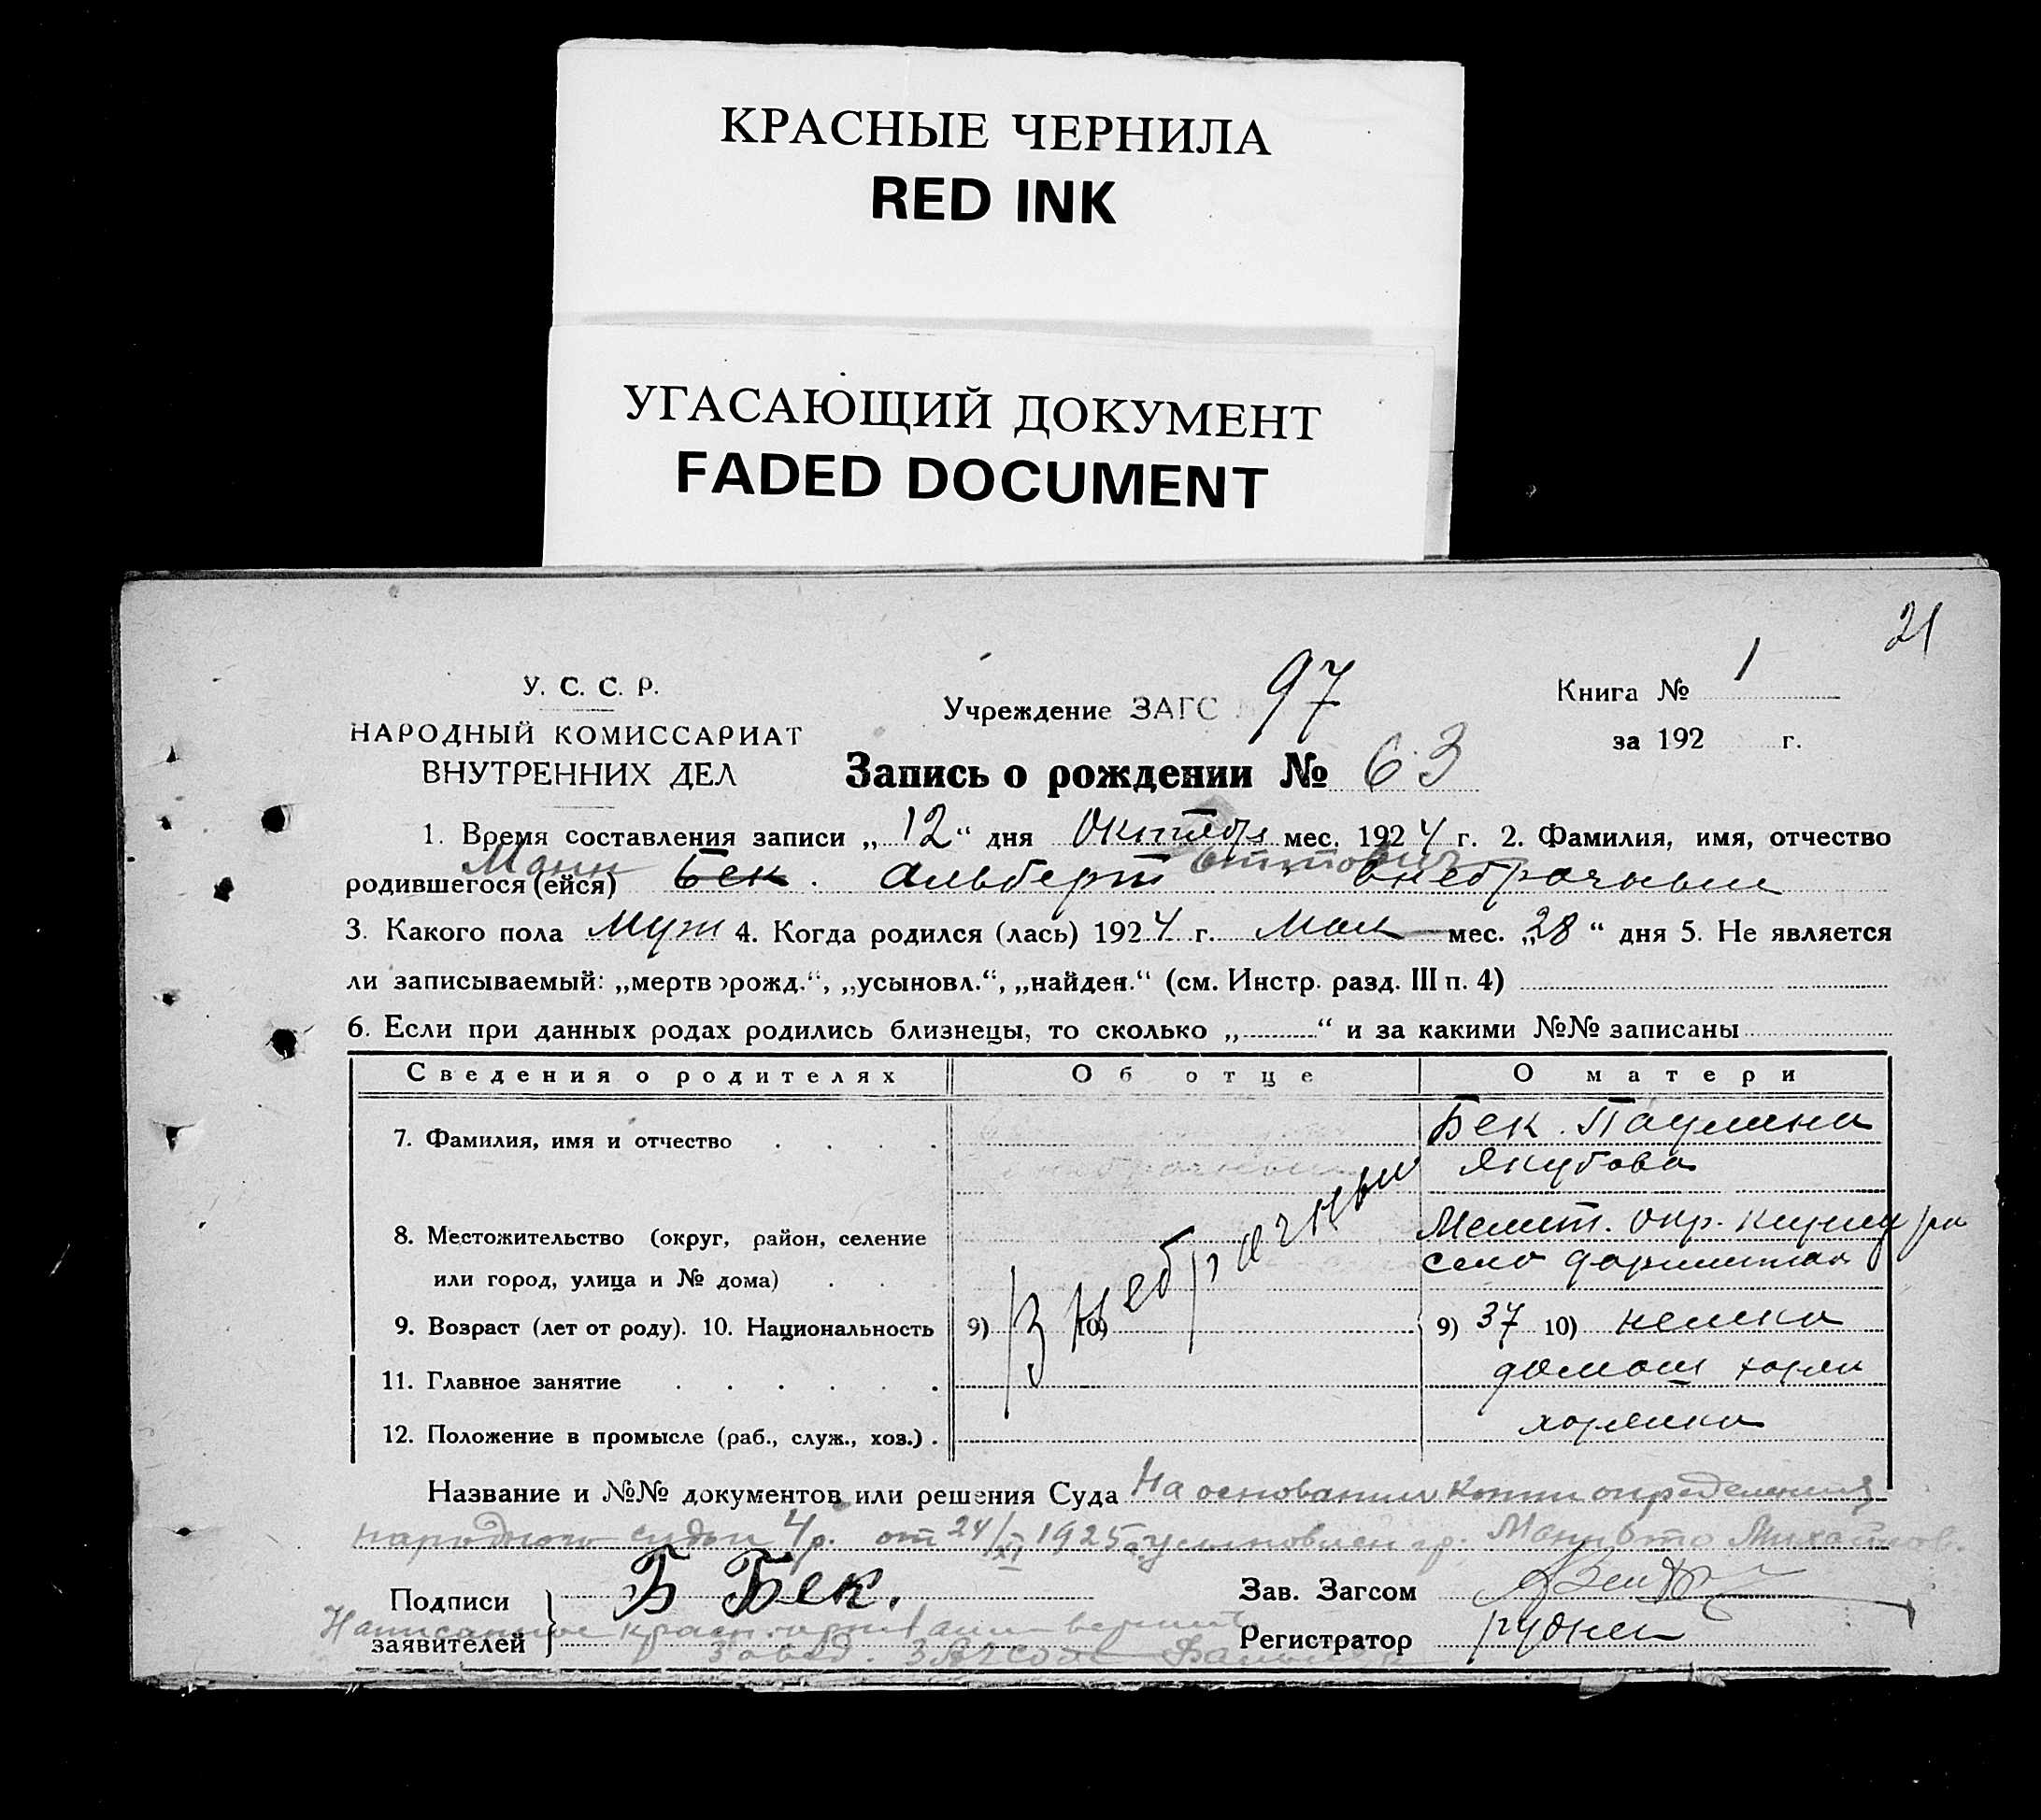 КРАСНЫЕ ЧЕРНИЛА
RED INK
УГАСАЮЩИЙ ДОКУМЕНТ
FADED DOCUMENT
21
У. С. С. Р.
НАРОДНЫЙ КОМИССАРИАТ
ВНУТРЕННИХ ДЕЛ
Учреждение ЗАГС 97
Книга № 1
за 192 г.
Запись о рождении № 63
1. Время составления записи „12“ дня Октября мес. 1924 г. 2. Фамилия, имя, отчество
Манн Оттович
родившегося (ейся) Бек. Альберт внебрачный
3. Какого пола Муж 4. Когда родился (лась) 1924 г. Мая мес. „28“ дня 5. Не является
ли записываемый: „мертворожд.“, „усыновл.“, „найден.“ (см. Инстр. разд. III п. 4)
6. Если при данных родах родились близнецы, то сколько „ “ и за какими №№ записаны
Сведения о родителях Об отце О матери
7. Фамилия, имя и отчество Бек. Паулина
Якубова
8. Местожительство (округ, район, селение Мелит. окр.
или город, улица и № дома) село
внебрачный
9. Возраст (лет от роду). 10. Национальность 9) 10) 9) 37 10) немка
11. Главное занятие домаш
12. Положение в промысле (раб., служ., хоз.)
Название и №№ документов или решения Суда На основании копии определения
народного судьи 4 р. от 24/XI 1925 г. усыновлен гр. Манн Отто Михайлов.
Подписи Б Бек. Зав. Загсом
Написанное красн. верить
заявителей Регистратор
Завед. ЗАГСом